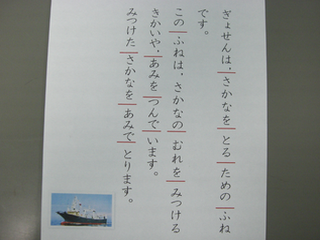 ぎょせんは、さかなを とる ための ふね
です。
この ふねは、さかなの むれを みつける
きかいや、あみを つんで います。
みつけた さかなを あみで とります。